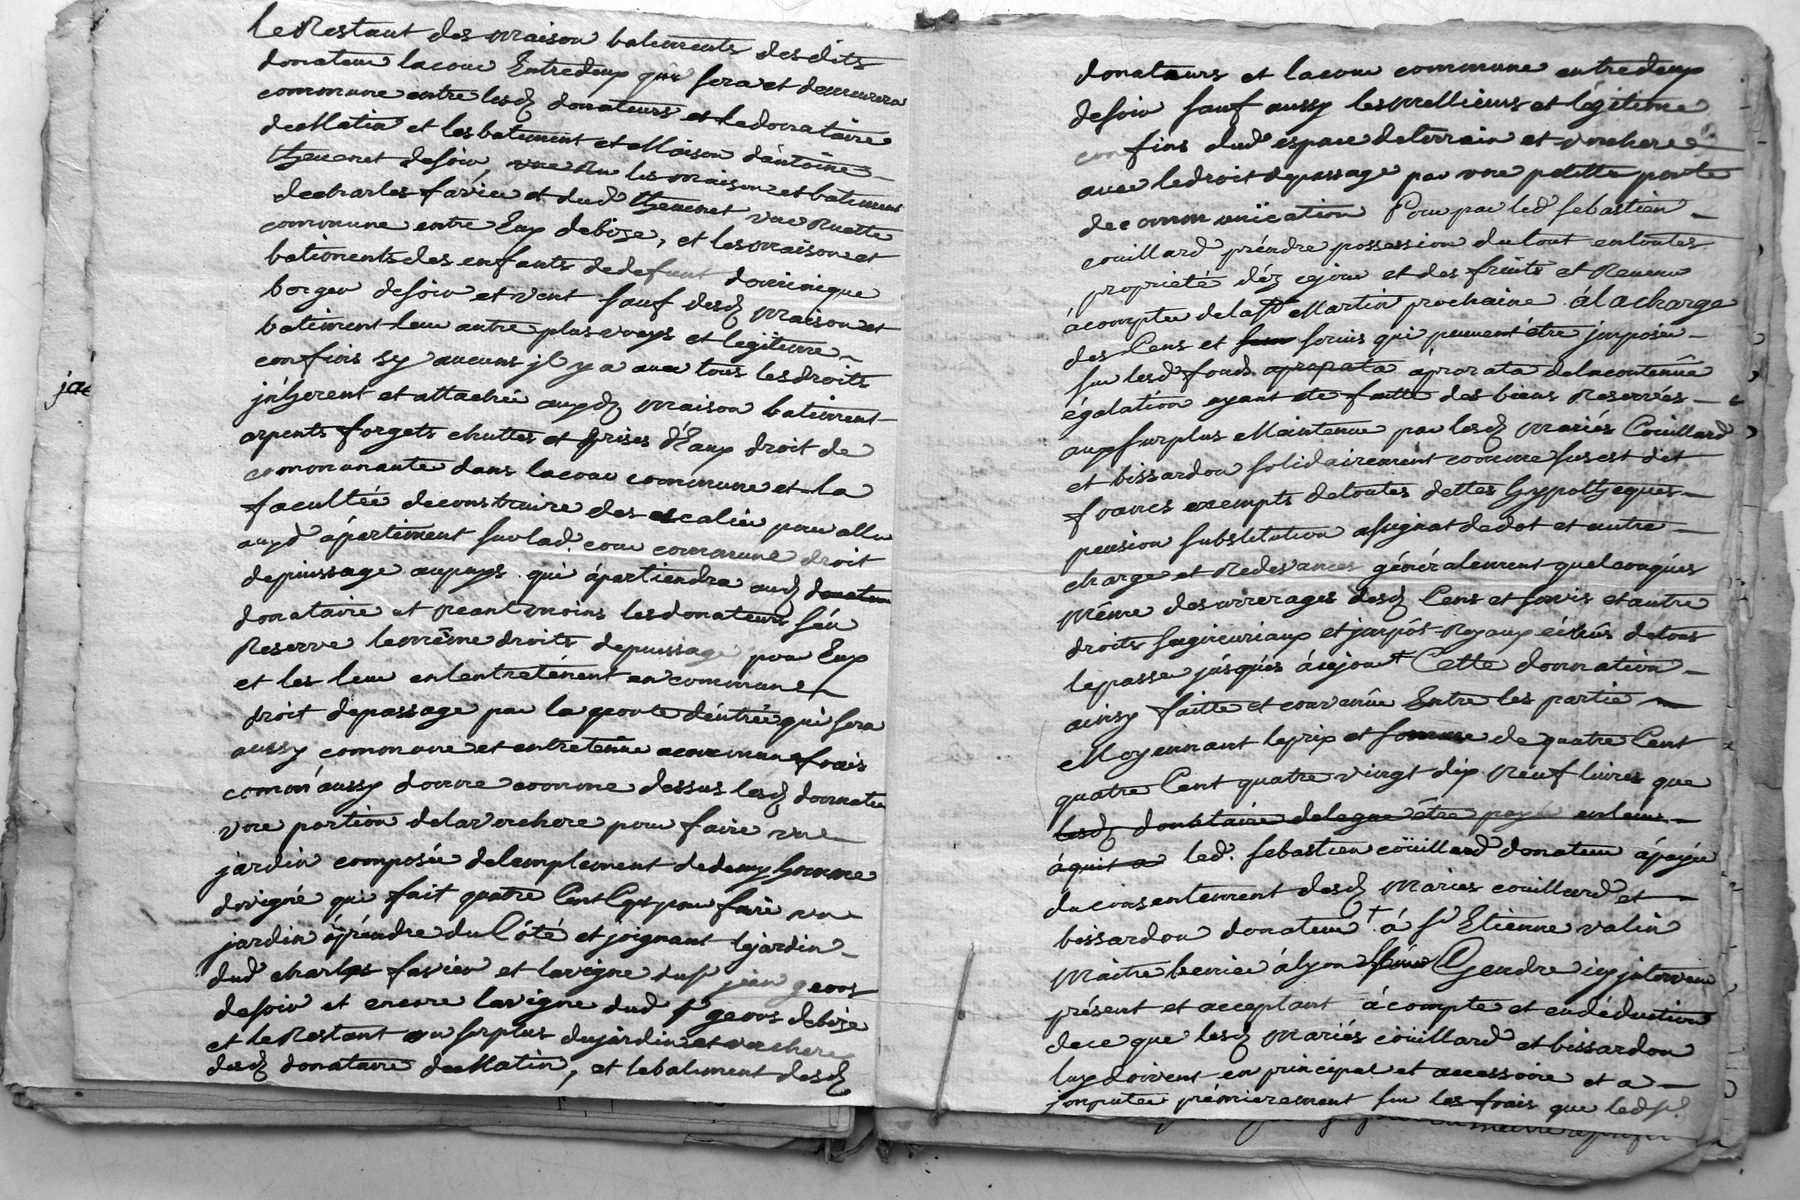 le Restant des maison batiments desdits
donateur lacour Entredeux qui sera et demeurera
commune entre lesd donateurs et le donataire
de Matin et les batiment et Maison d'entoine
thevenet de soir, une Rue les maison et batiment
de charles favier et dud thevenet une Ruette
commune entre Eux de bize, et les maison et
batiments des enfants de defunt dominique
de soir et vent sauf desd maison et
batiment leur autre plus vrays et legitime
confins sy aucuns jl y a avec tous les droits
jnherent et attachée auxd maison batiment
arpents forgets chuttes et prises d'Eaux droit de
communaute dans lacour commune et la
facultée de construire des escalier pour aller
auxd ápartiment sur lad. cour commune droit
depuissage au puys qui ápartiendra aud
donataire et neant moins les donateurs s'en
Reserve le même droits depuissage pour Eux
et les leur en lentretenent en commune
droit depassage par la porte déntrée qui sera
aussy commune et entretenue a commune frais
comm'aussy donne comme dessus lesd donateur
une portion de la verchere pour faire un
jardin composée de lemplement de demy homme
de vigne qui fait quatre Cent Ceps pour faire un
jardin á préndre du Côté et joignant lejardin
dud charles favier et lavigne du sr jean geoos
de soir et encore lavigne dud sr geoos de bize
et le Restant ou surplus du jardin et verchere
desd donataire de Matin, et le batiment desd
jae
donateurs et lacour commune entredeux
de soir sauf aussy les meilleurs et légitime
confins dud espace deterrain et verchere
avec le droit depassage par une petitte porte
de communication Pour par led sebastien
couillard préndre possession du tout en toutes
propriété déz cejour et des fruits et Revenu
á comptée de la St Martin prochaine á la charge
des Cens et servis qui peuvent être jmposée
sur lesd fonds aprorata áprorata de la contenüe
égalation ayant ete faitte des biens Reservés
aux surplus Maintenue par lesd mariés Coüillard
et bissardon solidairement comme sus est dit
francs exempts de toutes dettes hyppotheques
pension substitution assignat de dot et autre
charge et Redevances généralement quelconques
même des arrerages desd Cens et servis et autre
droits seigneuriaux et jmpôt Royaux échûs de tout
le passé jusques á ce jour + Cette donnation
ainsy faitte et convenüe Entre les partie
Moyennant le prix et somme de quatre Cent
quatre Cent quatre vingt dix neuf livres que
lesd donataire delegue être payé en leur
áquit a led. sebastien coüillard donateur á payée
du consentement desd Maries couillard et
bissardon donateur + á sr Etienne valin
Maitre á lyon Gendre icy jntervenu
présent et acceptant á compte et en déduction
de ce que lesd mariés coüillard et bissardon
luy doivent en principal et accessoire et a
jmputée prémierement sur les frais que led sr